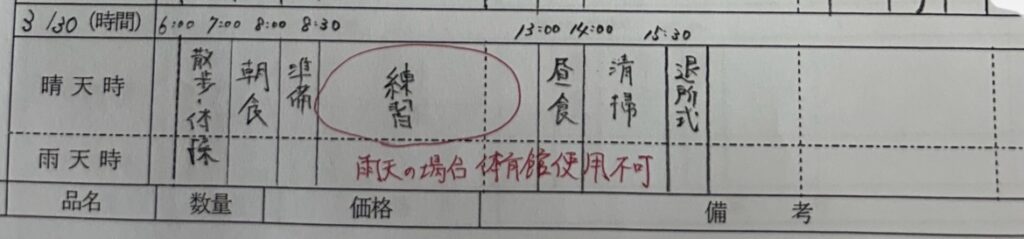 3/30 (時間) 6:00 7:00 8:00 8:30 13:00 14:00 15:30
晴天時 散歩・体操 朝食 準備 練習 昼食 清掃 退所式
雨天時 雨天の場合 体育館使用不可
品名 数量 価格 備考